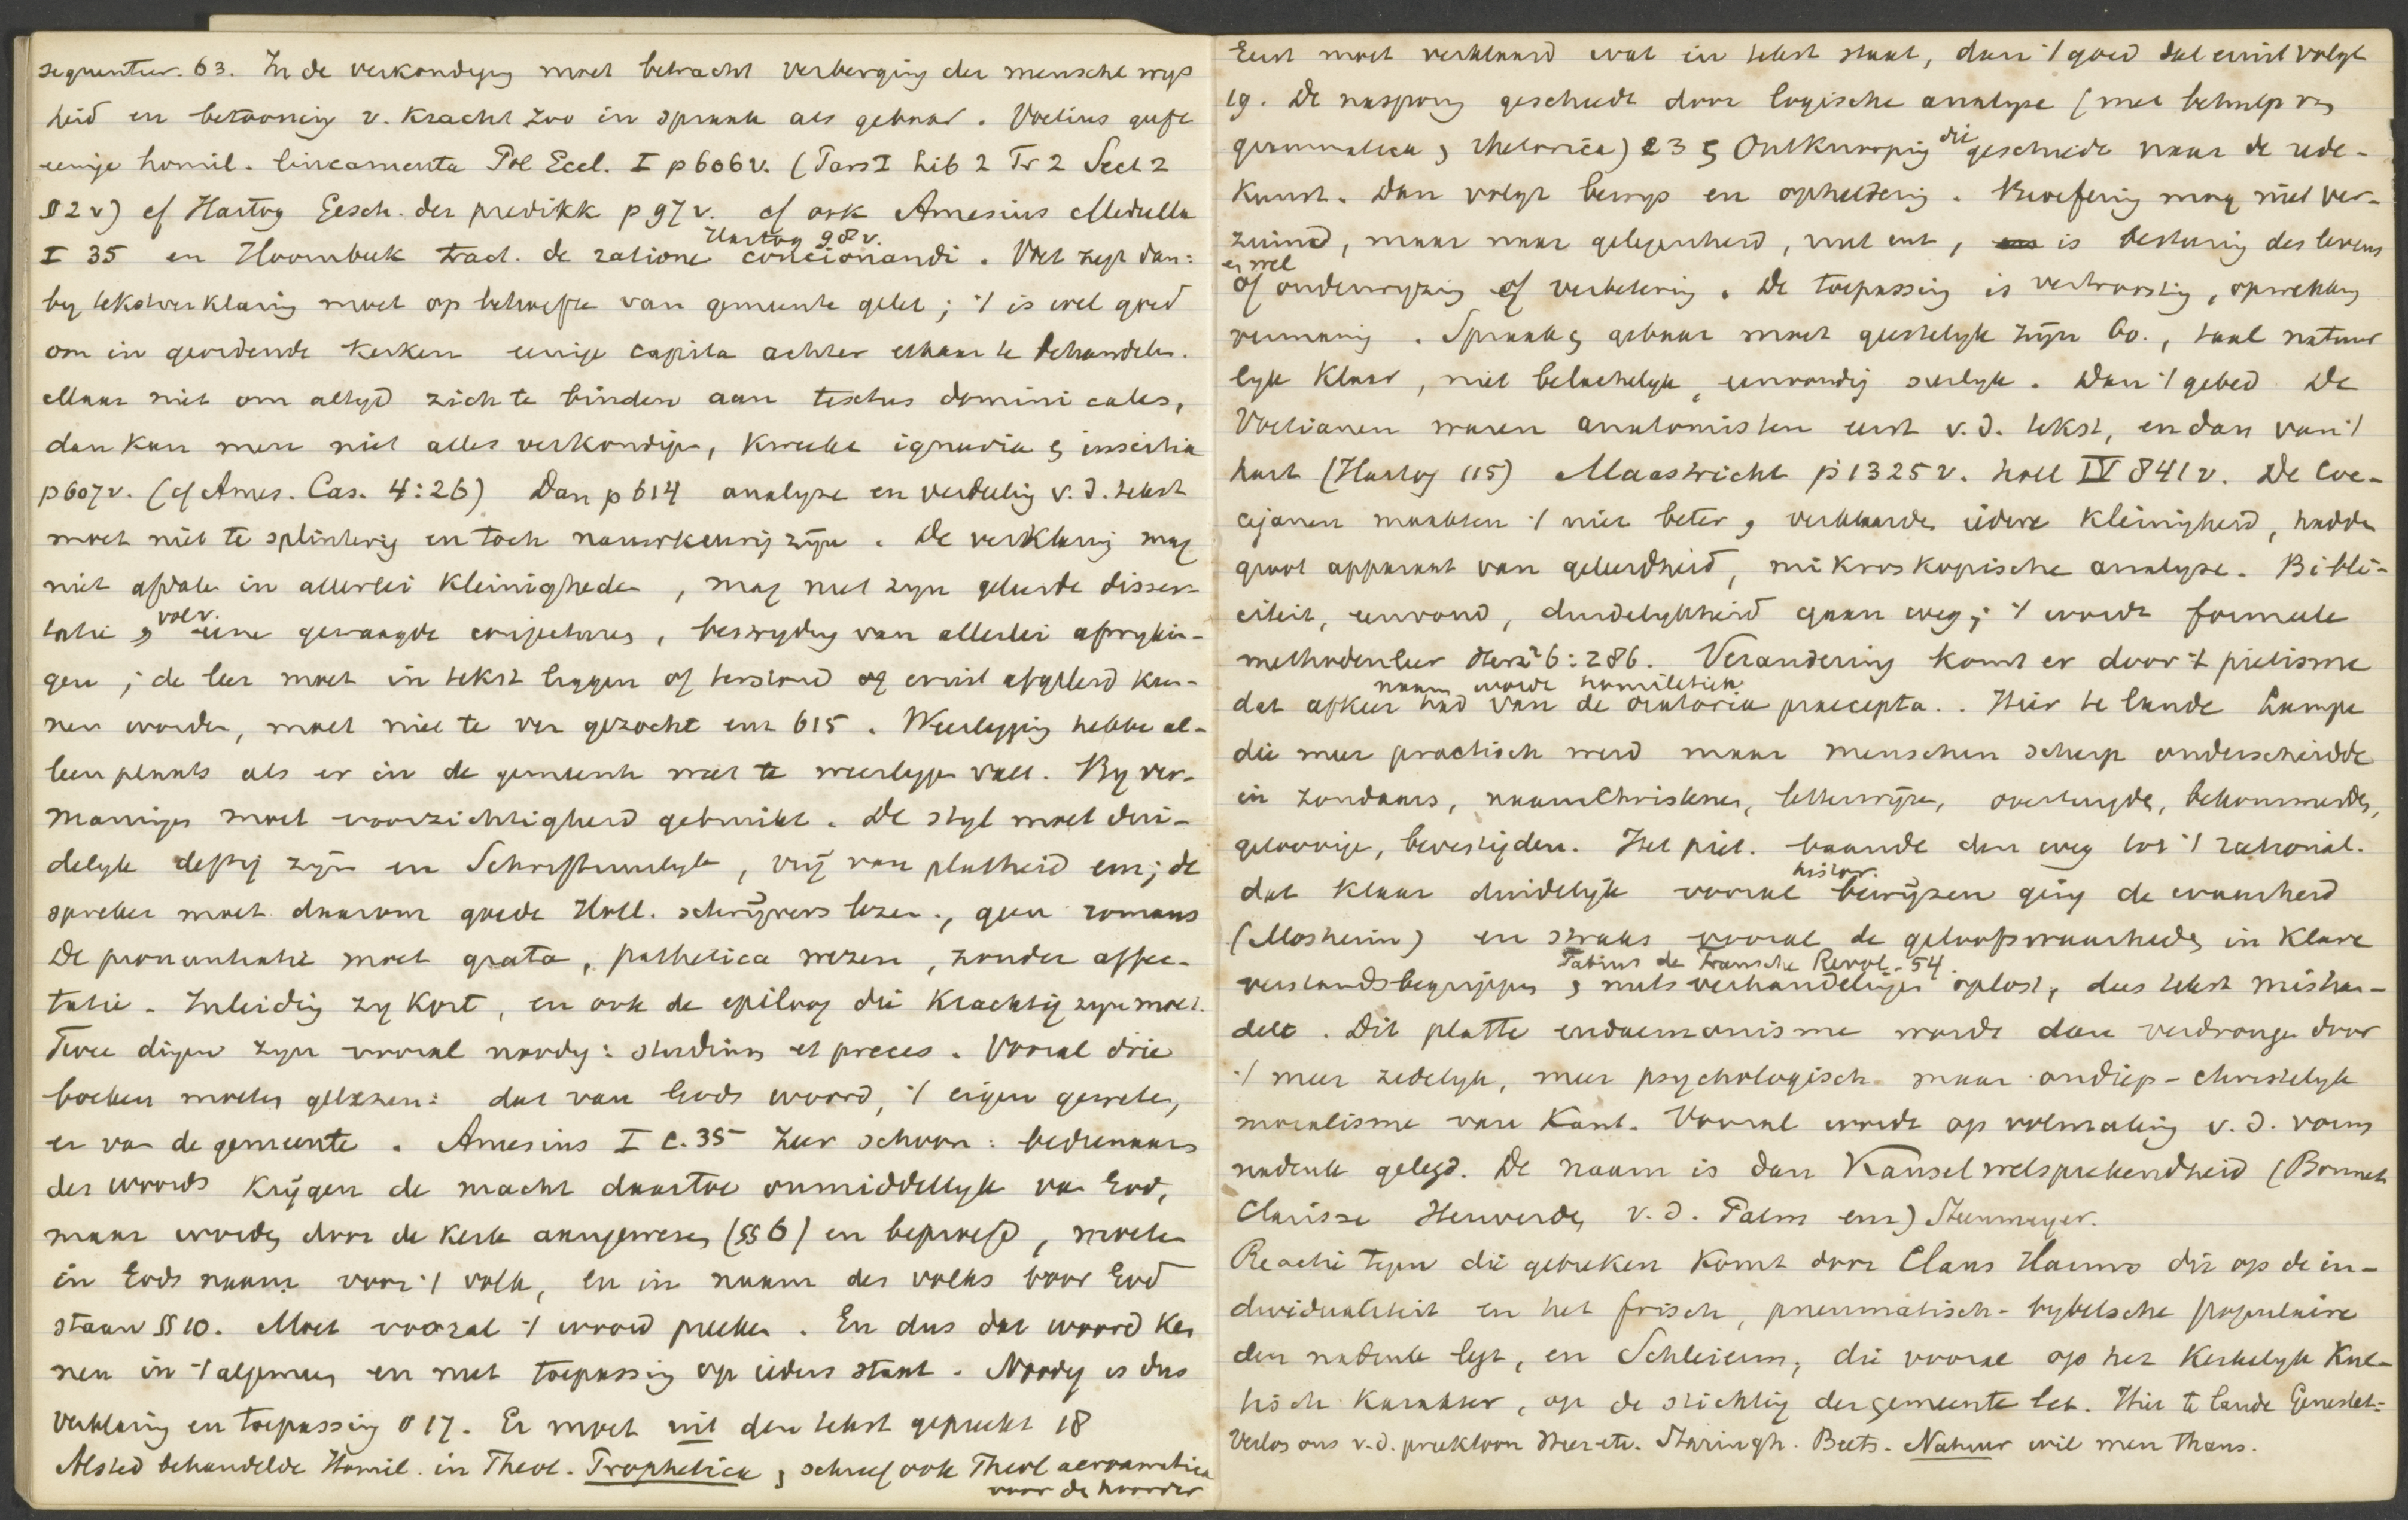 sequentur. 63. In de verkondiging moet betracht verberging der menschel wys
heid en betooning v. kracht zoo in spraak als gebaar. Voetius geeft
eenige homil. lineamenta Pol Eccl. I p 606 v. (Pars I Lib 2 Tr 2 Sect 2
§ 2 v) cf Hartog Gesch. der predikk p 97 v. cf ook Amesius Medulla
I 35 en Hoornbeek tract. de ratione concionandi. Voet zegt dan:
Hartog 98 v.
by tekstverklaring moet op behoefte van gemeente gelet; 't is wel goed
om in geordende kerken eenige capita achter elkaar te behandelen.
Maar niet om altyd zich te binden aan textus dominicales,
dan kan men niet alles verkondigen, kweekt ignavia & inscitia
p 607 v. (cf Ames. Cas. 4:26) Dan p 614 analyse en verdeeling v. d. tekst
moet niet te splinterig en toch nauwkeurig zijn. De verklaring mag
niet afdalen in allerlei kleinigheden, mag niet zyn geleerde disser-
tatie, vol v. gewaagde conjectures, bestryding van allerlei afwykin-
gen; de leer moet in tekst liggen of terstond er uit afgeleid kun-
nen worden, moet niet te ver gezocht enz 615. Weerlegging hebbe al-
leen plaats als er in de gemeente wat te weerleggen valt. By ver-
maningen moet voorzichtigheid gebruikt. De styl moet dui-
delyk deftig zijn en Schriftuurlyk, vrij van platheid enz; de
spreker moet daarom goede Holl. schrijvers lezen, geen romans
De pronuntiatie moet grata, pathetica wezen, zonder affec-
tatie. Inleiding zy kort, en ook de epiloog die krachtig zyn moet.
Twee dingen zyn vooral noodig: studium et preces. Vooral drie
boeken moeten gelezen: dat van Gods woord, 't eigen geweten,
en van de gemeente. Amesius I c. 35 zeer schoon: bedienaars
des woords krijgen de macht daartoe onmiddellyk van God,
maar worden door de kerk aangewezen (§§ 6) en beproefd, moeten
in Gods naam voor 't volk, en in naam des volks voor God
staan §§ 10. Moet vooral 't woord preeken. En dus dat woord ken
nen in 't algemeen en met toepassing op ieders staat. Noodig is dus
verklaring en toepassing § 17. Er moet uit den tekst gepreekt 18
Alsted behandelde Homil. in Theol. Prophetica, schreef ook Theol acroamatica
voor de hoorder
Eerst moet verklaard wat in tekst staat, dan 't goed dat eruit volgt
19. De nasporing geschiedt door logische analyse (met behulp van
grammatica & rhetorica) 23 & Ontknooping die geschiede naar de rede-
kunst. Dan volgt bewys en opheldering. Beoefening mag niet ver-
zuimd, maar naar gelegenheid, wat ent, is besturing des levens
en wel
of onderwyzing of verbetering. De toepassing is vertroosting, opwekking
vermaning. Spraak & gebaar moet geestelyk zijn 60., taal natuur
lyk klaar, niet belachelyk, eenvoudig sierlyk. Dan 't gebed De
Voetianen waren anatomisten eerst v. d. tekst, en dan van 't
hart (Hartog 115) Maastricht p 1325 v. holl IV 841 v. De Coc-
cejanen maakten 't niet beter, verklaarden iedere kleinigheid, hadden
groot apparaat van geleerdheid, mikroskopische analyse. Bibli-
citeit, eenvoud, duidelykheid gaan weg; 't wordt formeele
methodenleer Herz² 6:286. Verandering komt er door 't pietisme
naam wordt homiletiek
dat afkeer had van de oratoria praecepta. Hier te lande Lampe
die meer practisch werd maar menschen scherp onderscheidde
in zondaars, naamchristenen, letterwijzen, overtuigden, bekommerden,
geloovige, bevestigden. Het piet. baande den weg tot 't rational.
dat klaar duidelyk vooral histor. bewijzen ging de waarheid
(Mosheim) en straks vooral de geloofswaarheden in klare
Tabius de Fransche Revol. 54.
verstandsbegrippen & nutsverhandelingen oplost, den tekst mishan-
delt. Dit platte eudaemonisme wordt dan verdrongen door
't meer zedelyk, meer psychologisch maar ondiep-christelyk
moralisme van Kant. Vooral wordt op volmaking v. d. vorm
nadruk gelegd. De naam is dan Kanselwelsprekendheid (Bonnet
Clarisse Herwerden v. d. Palm enz) Steenmeyer.
Reactie tegen die gebreken komt door Claus Harms die op de in-
dividualiteit en het frisch, pneumatisch-bybelsche populaire
den nadruk legt, en Schleierm, die vooral op het kerkelyk kul-
tisch karakter, op de stichting der gemeente let. Hier te lande Genestet:
Verlos ons v. d. preektoon Heer etc. Staringh. Beets. Natuur wil men thans.